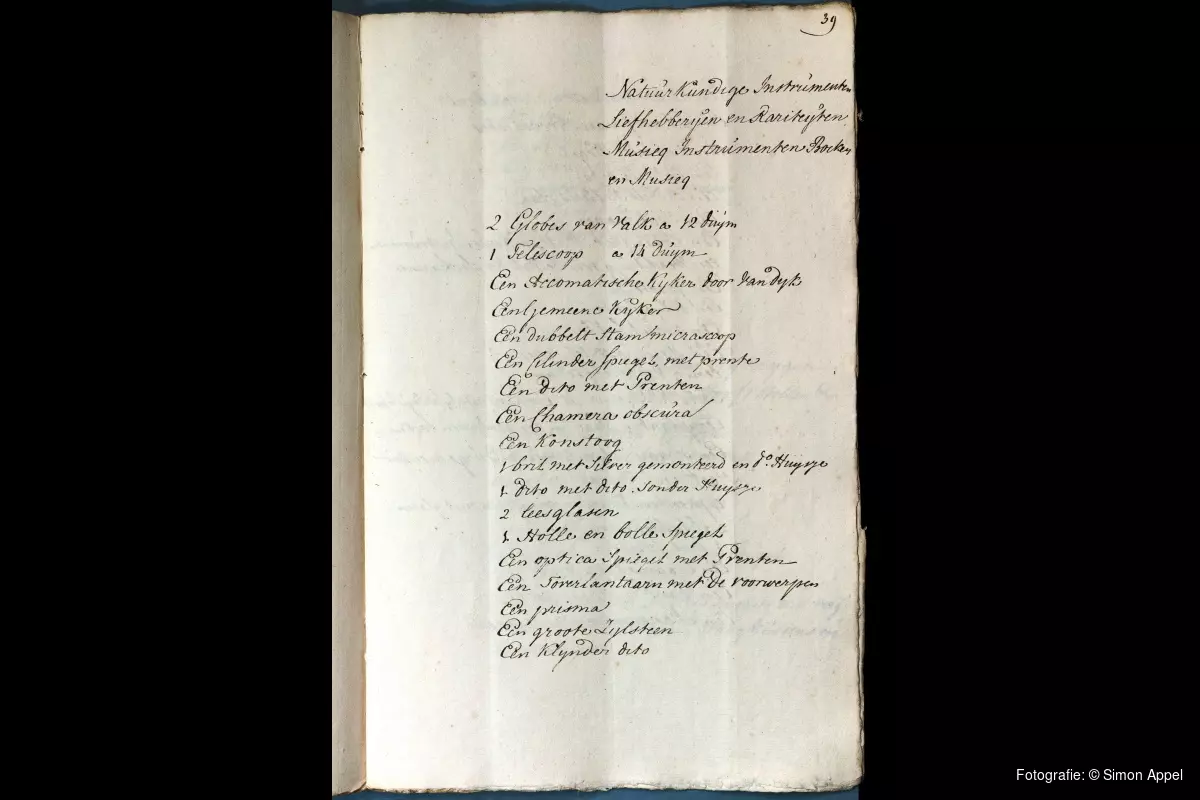 39
Natuurkundige Instrumenten
Liefhebberyen en Rariteyten
Musieq Instrumenten Boeken
en Musieq
2 Globes van Valk a 12 duym
1 Teliscoop a 14 Duym
Een Accomatische Kyker door Van dyk
Een Gemeene Kyker
Een dubbelt Stam microscoop
Een Cilinder Spiegel met prente
Een dito met Prenten
Een Chamera obscura
Een Konstoog
1 bril met Silver gemonteerd en do. Huysye
1 dito met dito sonder Huysye
2 leesglasen
1 Holle en bolle Spiegel
Een optica Spiegel met Prenten
Een Toverlantaarn met de voorwerpen
Een prisma
Een groote Zylsteen
Een Klynder dito
Fotografie: © Simon Appel